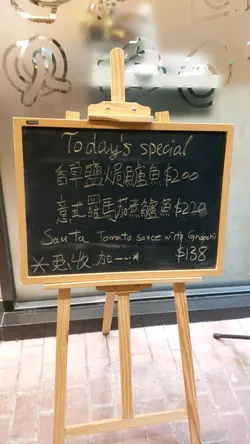 Today's special
香草鹽焗鱸魚$200
意式羅馬茄煮鱸魚$220
Santa Tomato sauce with Gnocchi
$138
另收加一